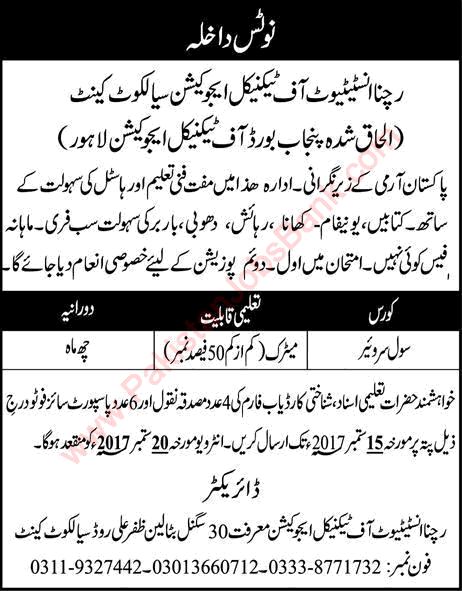 نوٹس داخلہ
رچنا انسٹیٹیوٹ آف ٹیکنیکل ایجوکیشن سیالکوٹ کینٹ
(الحاق شدہ پنجاب بورڈ آف ٹیکنیکل ایجوکیشن لاہور)
پاکستان آرمی کے زیر نگرانی۔ ادارہ ھذا میں مفت فنی تعلیم اور ہاسٹل کی سہولت کے
ساتھ۔ کتابیں، یونیفام۔ کھانا، رہائش، دھوبی، باربر کی سہولت سب فری۔ ماہانہ
فیس کوئی نہیں۔ امتحان میں اول۔ دوئم پوزیشن کے لیئے خصوصی انعام دیا جائے گا۔
کورس تعلیمی قابلیت دورانیہ
سول سروئیر میٹرک (کم از کم 50 فیصد نمبر) چھ ماہ
خواہشمند حضرات تعلیمی اسناد، شناختی کارڈ یاب فارم کی 4 عدد مصدقہ نقول اور 6 عدد پاسپورٹ سائز فوٹو درج
ذیل پتہ پر مورخہ 15 ستمبر 2017ء تک ارسال کریں۔ انٹرویو مورخہ 20 ستمبر 2017ء کو منعقد ہوگا۔
ڈائریکٹر
رچنا انسٹیٹیوٹ آف ٹیکنیکل ایجوکیشن معرفت 30 سگنل بٹالین ظفر علی روڈ سیالکوٹ کینٹ
فون نمبر: 0333-8771732۔ 03013660712۔ 0311-9327442
www.PakistanJobsBank.com